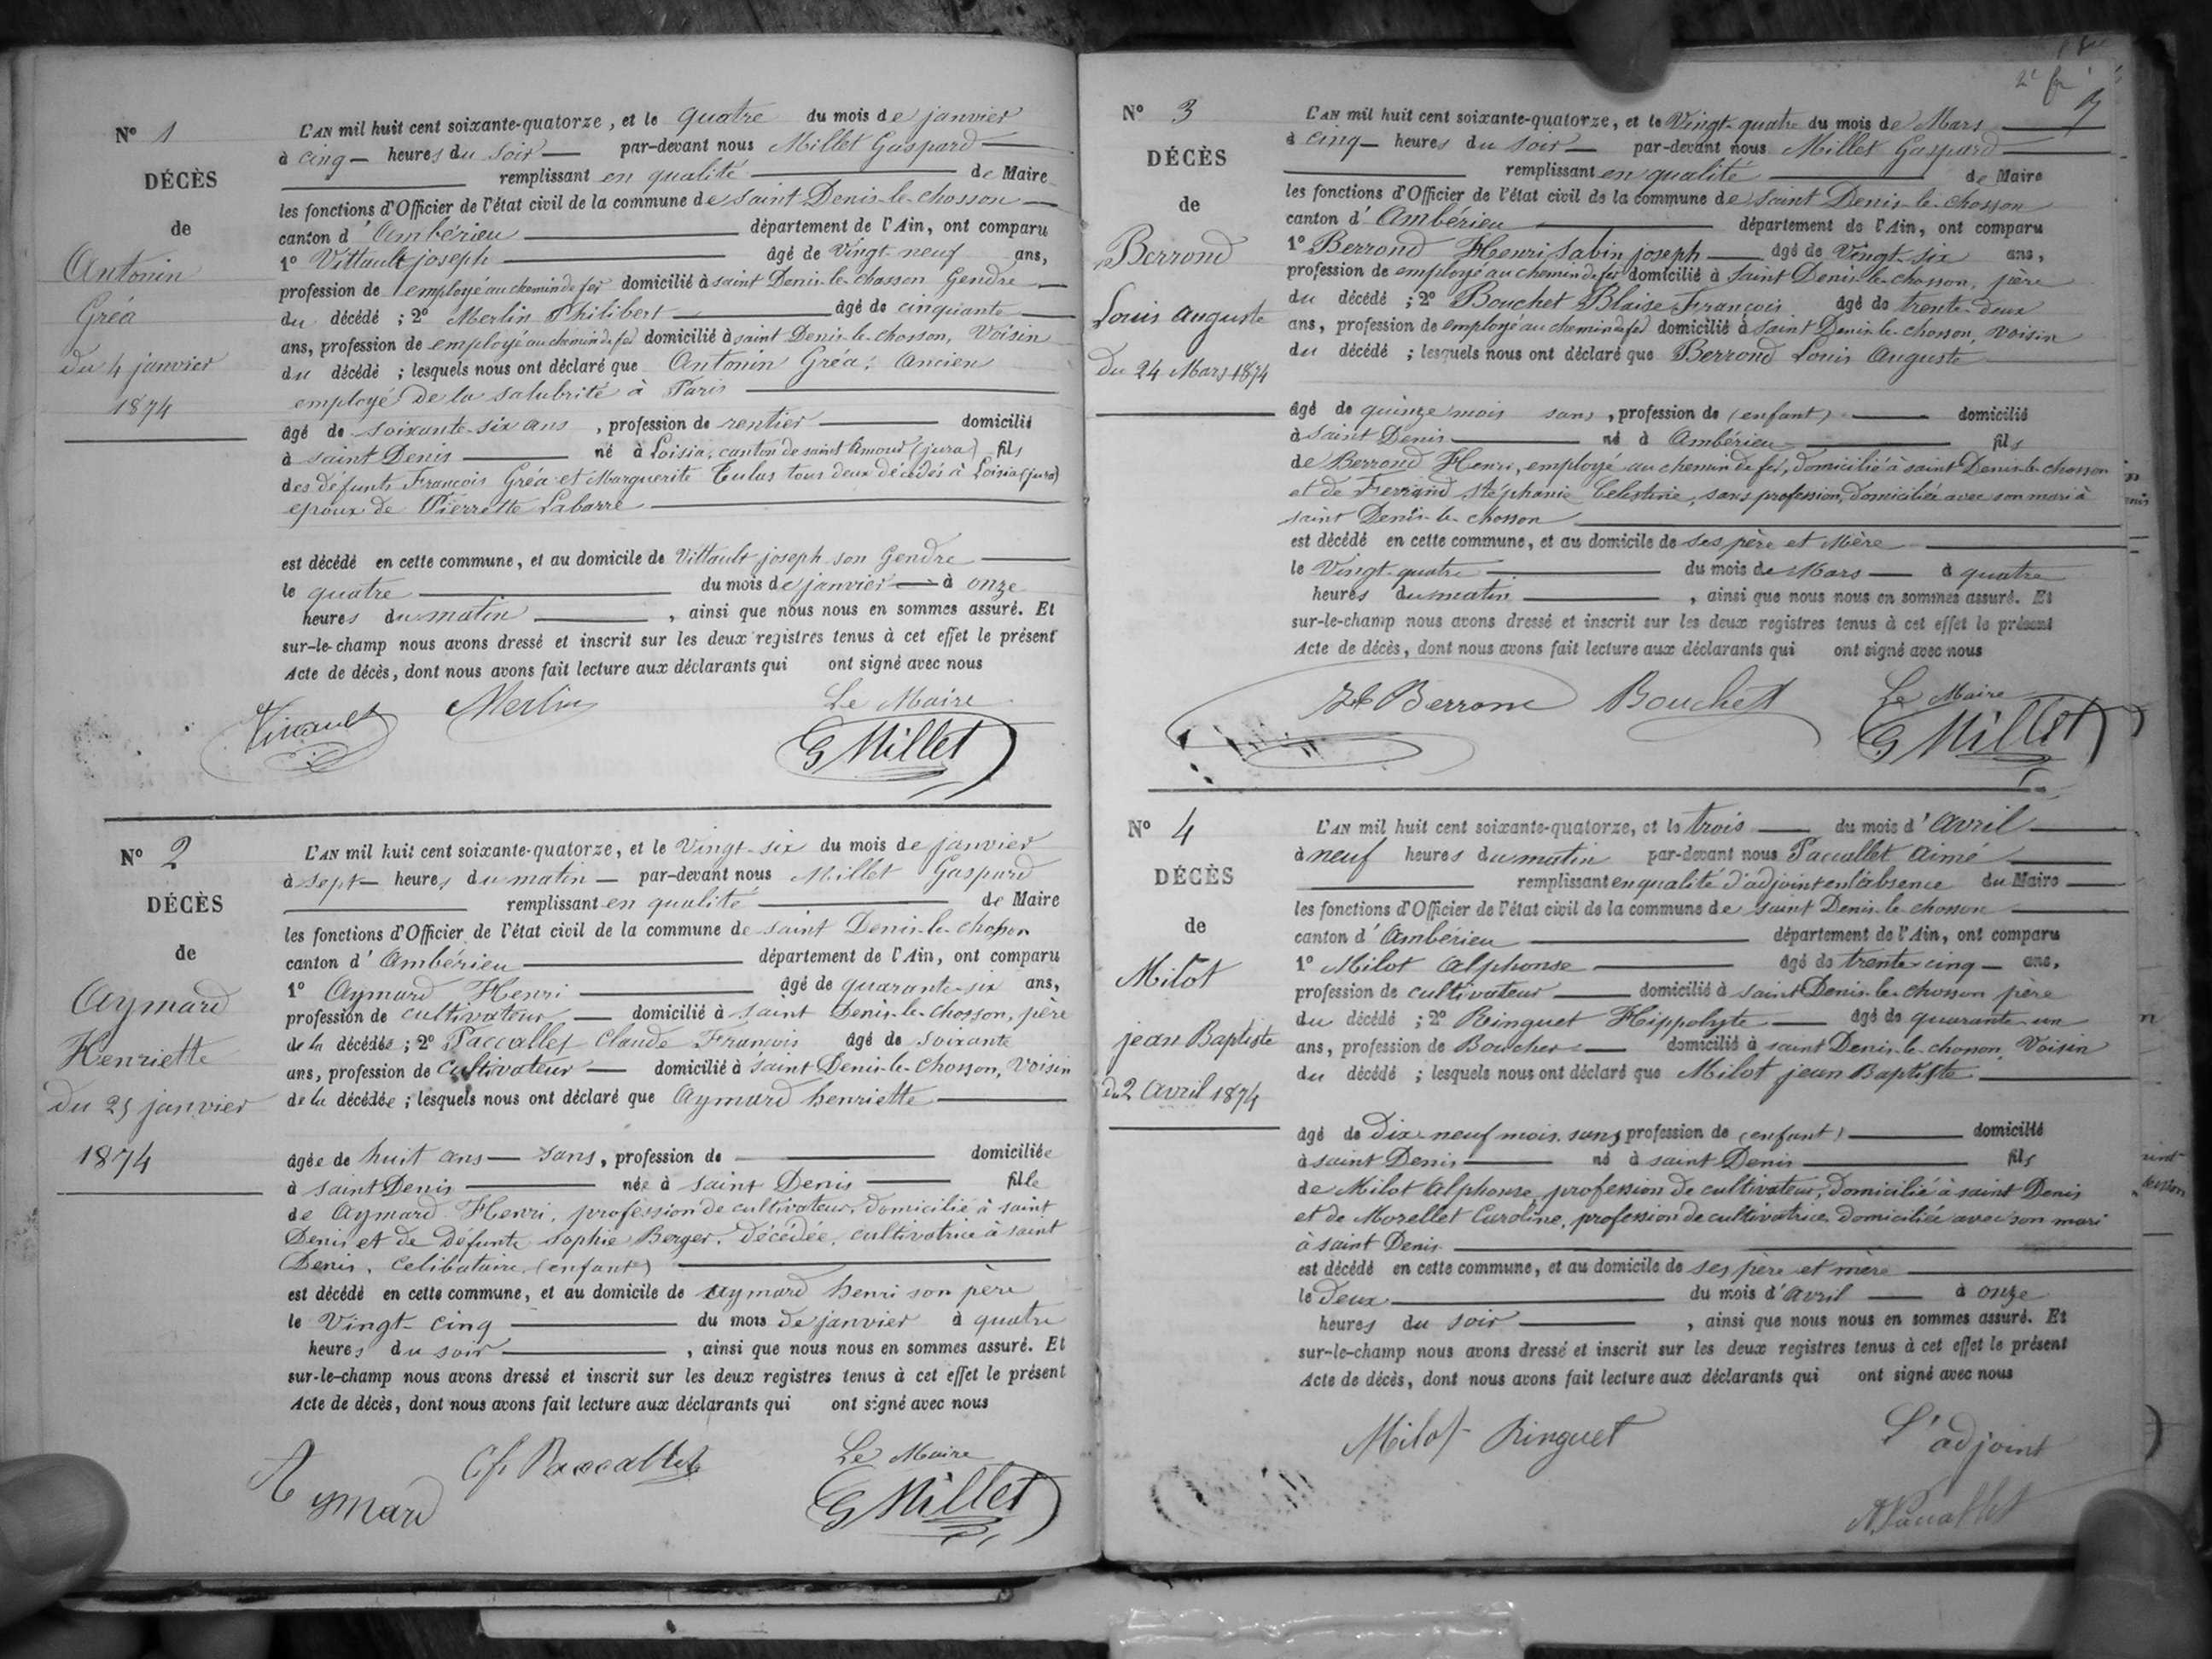 N° 1
DÉCÈS
de
Antonin
Gréa
du 4 janvier
1874
L'AN mil huit cent soixante-quatorze, et le quatre du mois de janvier
à cinq heures du soir par-devant nous Millet Gaspard
remplissant en qualité de Maire
les fonctions d'Officier de l'état civil de la commune de saint Denis-le-chosson
canton d'Ambérieu département de l'Ain, ont comparu
1° Vittault joseph âgé de Vingt neuf ans,
profession de employé au chemin de fer domicilié à saint Denis-le-chosson Gendre
du décédé ; 2° Merlin Philibert âgé de cinquante
ans, profession de employé au chemin de fer domicilié à saint Denis-le-chosson, Voisin
du décédé ; lesquels nous ont déclaré que Antonin Gréa, Ancien
employé de la salubrité à Paris
âgé de soixante-six ans, profession de rentier domicilié
à saint Denis né à Loisia, canton de saint Amour (jura) fils
des défunts François Gréa et Marguerite Tulas tous deux décédés à Loisia (jura)
epoux de Pierrette Labarre
est décédé en cette commune, et au domicile de Vittault joseph son Gendre
le quatre du mois de janvier à onze
heures du matin, ainsi que nous nous en sommes assuré. Et
sur-le-champ nous avons dressé et inscrit sur les deux registres tenus à cet effet le présent
Acte de décès, dont nous avons fait lecture aux déclarants qui ont signé avec nous
Merlin Le Maire
G Millet
N° 2
DÉCÈS
de
Aymard
Henriette
du 25 janvier
1874
L'AN mil huit cent soixante-quatorze, et le Vingt-six du mois de janvier
à sept heures du matin par-devant nous Millet Gaspard
remplissant en qualité de Maire
les fonctions d'Officier de l'état civil de la commune de saint Denis-le-chosson
canton d'Ambérieu département de l'Ain, ont comparu
1° Aymard Henri âgé de quarante-six ans,
profession de cultivateur domicilié à saint Denis-le-chosson, père
de la décédée ; 2° Paccallet Claude François âgé de soixante
ans, profession de cultivateur domicilié à saint Denis-le-chosson, Voisin
de la décédée ; lesquels nous ont déclaré que Aymard henriette
âgée de huit ans sans, profession de domiciliée
à saint Denis née à saint Denis fille
de Aymard Henri, profession de cultivateur, domicilié à saint
Denis et de défunte Sophie Berger, décédée, cultivatrice à saint
Denis, Celibataire (enfant)
est décédé en cette commune, et au domicile de aymard henri son père
le Vingt-cinq du mois de janvier à quatre
heures du soir, ainsi que nous nous en sommes assuré. Et
sur-le-champ nous avons dressé et inscrit sur les deux registres tenus à cet effet le présent
Acte de décès, dont nous avons fait lecture aux déclarants qui ont signé avec nous
Aymard Cf Paccallet Le Maire
G Millet
N° 3
DÉCÈS
de
Berrond
Louis auguste
du 24 Mars 1874
L'AN mil huit cent soixante-quatorze, et le Vingt-quatre du mois de Mars
à cinq heures du soir par-devant nous Millet Gaspard
remplissant en qualité de Maire
les fonctions d'Officier de l'état civil de la commune de saint Denis-le-chosson
canton d'Ambérieu département de l'Ain, ont comparu
1° Berrond Henri Sabin joseph âgé de Vingt-six ans,
profession de employé au chemin de fer domicilié à saint Denis-le-chosson, père
du décédé ; 2° Bouchet Blaise François âgé de trente-deux
ans, profession de employé au chemin de fer domicilié à saint Denis-le-chosson, voisin
du décédé ; lesquels nous ont déclaré que Berrond Louis Auguste
âgé de quinze mois sans, profession de (enfant) domicilié
à saint Denis né à Ambérieu fils
de Berrond Henri, employé au chemin de fer, domicilié à saint Denis-le-chosson
et de Ferrand stéphanie Celestine, sans profession, domiciliée avec son mari à
saint Denis-le-chosson
est décédé en cette commune, et au domicile de ses père et Mère
le Vingt-quatre du mois de Mars à quatre
heures du matin, ainsi que nous nous en sommes assuré. Et
sur-le-champ nous avons dressé et inscrit sur les deux registres tenus à cet effet le présent
Acte de décès, dont nous avons fait lecture aux déclarants qui ont signé avec nous
Berrond Bouchet Le Maire
G Millet
N° 4
DÉCÈS
de
Milot
jean Baptiste
du 2 avril 1874
L'AN mil huit cent soixante-quatorze, et le trois du mois d'avril
à neuf heures du matin par-devant nous Paccallet aimé
remplissant en qualité d'adjoint en l'absence du Maire
les fonctions d'Officier de l'état civil de la commune de saint Denis-le-chosson
canton d'Ambérieu département de l'Ain, ont comparu
1° Milot Alphonse âgé de trente-cinq ans,
profession de cultivateur domicilié à saint Denis-le-chosson père
du décédé ; 2° Ringuet Hippolyte âgé de quarante-un
ans, profession de Boucher domicilié à saint Denis-le-chosson, Voisin
du décédé ; lesquels nous ont déclaré que Milot jean Baptiste
âgé de Dix-neuf mois, sans profession de (enfant) domicilié
à saint Denis né à saint Denis fils
de Milot Alphonse, profession de cultivateur, domicilié à saint Denis
et de Morellet Caroline, profession de cultivatrice, domiciliée avec son mari
à saint Denis
est décédé en cette commune, et au domicile de ses père et mère
le deux du mois d'avril à onze
heures du soir, ainsi que nous nous en sommes assuré. Et
sur-le-champ nous avons dressé et inscrit sur les deux registres tenus à cet effet le présent
Acte de décès, dont nous avons fait lecture aux déclarants qui ont signé avec nous
Milot Ringuet L'adjoint
A Paccallet